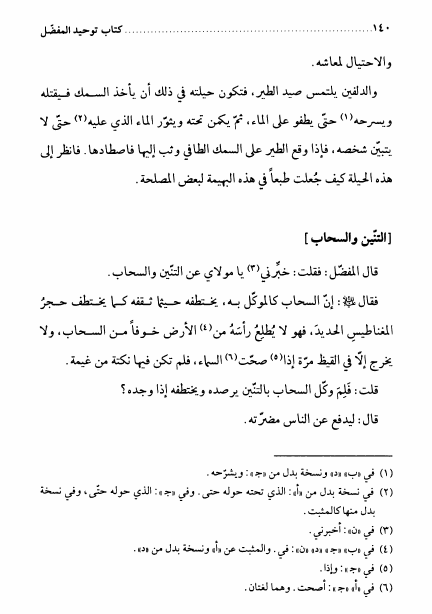 ١٤٠ ........................................ كتاب توحيد المفضّل
والاحتيال لمعاشه.
والدلفين يلتمس صيد الطير، فتكون حيلته في ذلك أن يأخذ السمك فيقتله
ويسرحه(١) حتّى يطفو على الماء، ثمّ يكمن تحته ويثوّر الماء الذي عليه(٢) حتّى لا
يتبيّن شخصه، فإذا وقع الطير على السمك الطافي وثب إليها فاصطادها. فانظر إلى
هذه الحيلة كيف جُعلت طبعاً في هذه البهيمة لبعض المصلحة.
[التنّين والسحاب]
قال المفضّل: فقلت: خبِّرني(٣) يا مولاي عن التنّين والسحاب.
فقال ﷺ: إنّ السحاب كالموكّل بـه، يختطفه حـيثما ثـقفه كـما يخـتطف حـجرُ
المغناطيسِ الحديدَ، فهو لا يُطلِعُ رأسَهُ من(٤) الأرض خـوفاً مـن السـحاب، ولا
يخرج إلّا في القيظ مرّة إذا(٥) صحّت(٦) السماء، فلم تكن فيها نكتة من غيمة.
قلت: فَلِمَ وكّل السحاب بالتنّين يرصده ويختطفه إذا وجده؟
قال: ليدفع عن الناس مضرّته.
(١) في «ب» «د» ونسخة بدل من «ج»: ويشرّحه.
(٢) في نسخة بدل من «أ»: الذي تحته حوله حتى. وفي «ج»: الذي حوله حتّى، وفي نسخة
بدل منها كالمثبت.
(٣) في «ن»: أخبرني.
(٤) في «ب» «ج» «د» «ن»: في. والمثبت عن «أ» ونسخة بدل من «د».
(٥) في «ج»: وإذا.
(٦) في «أ» «ج»: أصحت. وهما لغتان.